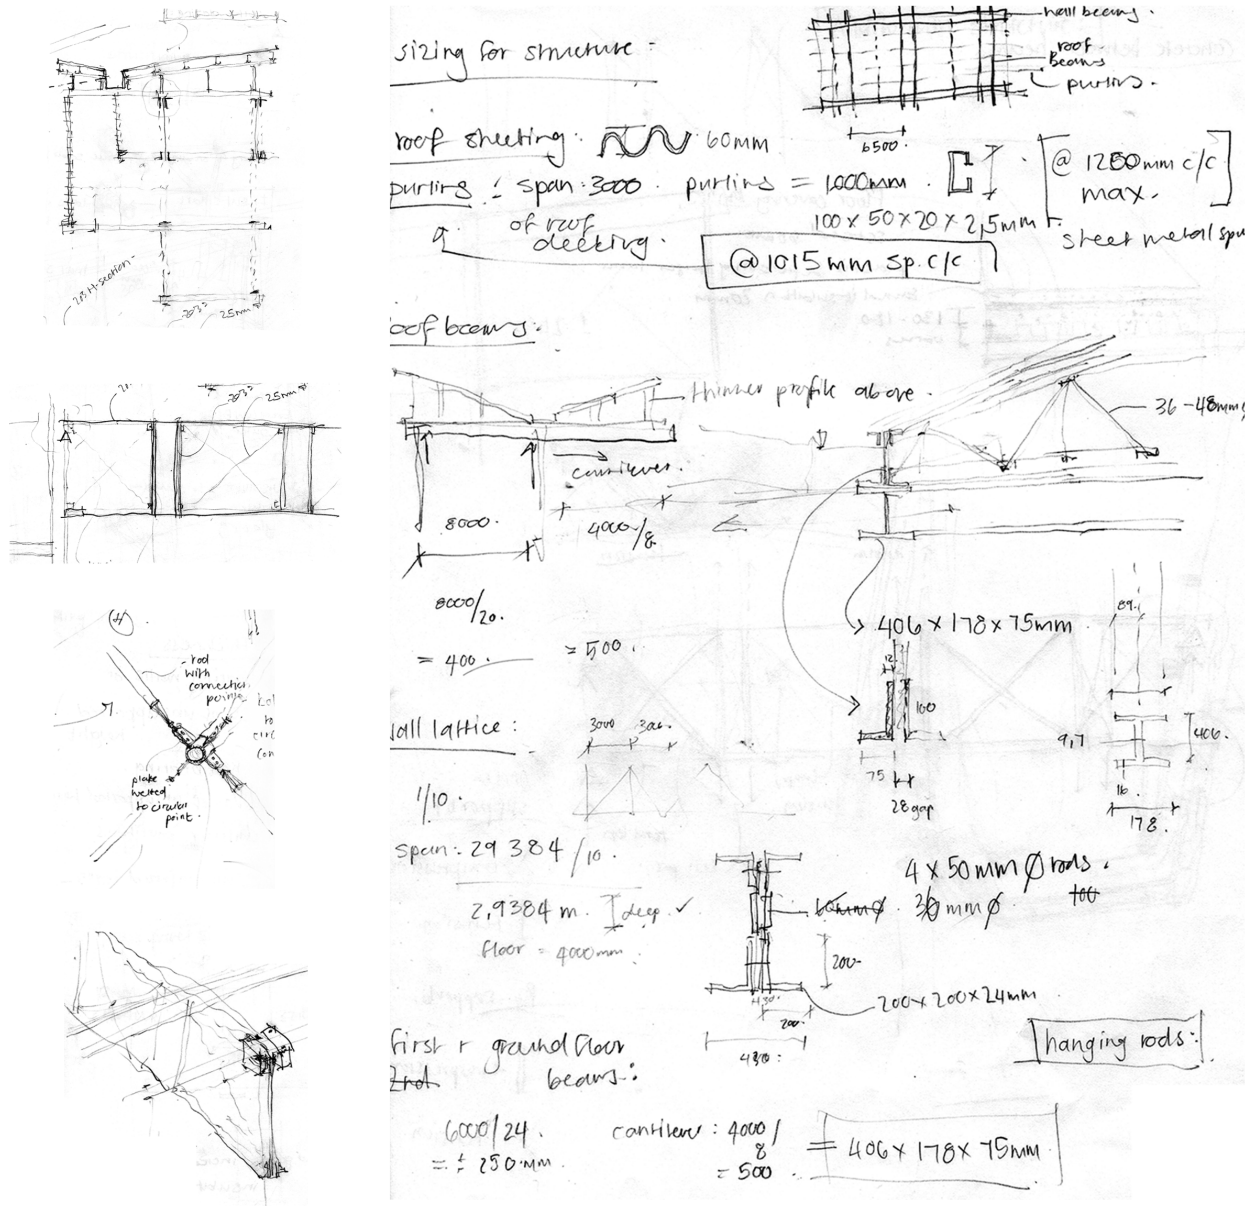 203 H-section
203
25mm
203
25mm
- rod
with
connection
points
plate
welted
to circular
point.
sizing for structure -
wall beams.
roof
beams
purlins.
6500
roof sheeting. 60mm
purlins : span:3000. purlins = 1000mm.
of roof
decking.
100 x 50 x 20 x 2,5mm
@ 1250mm c/c
max.
sheet metal span
@ 1015 mm sp. c/c
oof beams:
thinner profile above.
36 - 48mm
cantilever.
8000.
4000/8.
8000/20.
= 400.
= 500.
406 x 178 x 75mm
89.
12
100
75
28 gap
9,7
406.
16.
178.
all lattice:
3000 3000
1/10.
span: 29 384 /10.
2,9384 m. deep ✓
floor = 4000mm.
4 x 50mm Ø rods.
36 mm Ø.
200.
200 x 200 x 24mm
30.
200.
430
hanging rods:
first + ground floor
2nd beams:
6000/24.
= ± 250 mm.
cantilever: 4000/
8
= 500
= 406 x 178 x 75mm